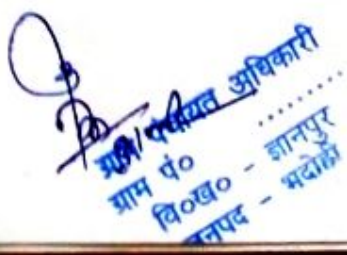 ग्राम पंचायत अधिकारी
ग्राम पं० ............
वि०ख० - ज्ञानपुर
जनपद - भदोही